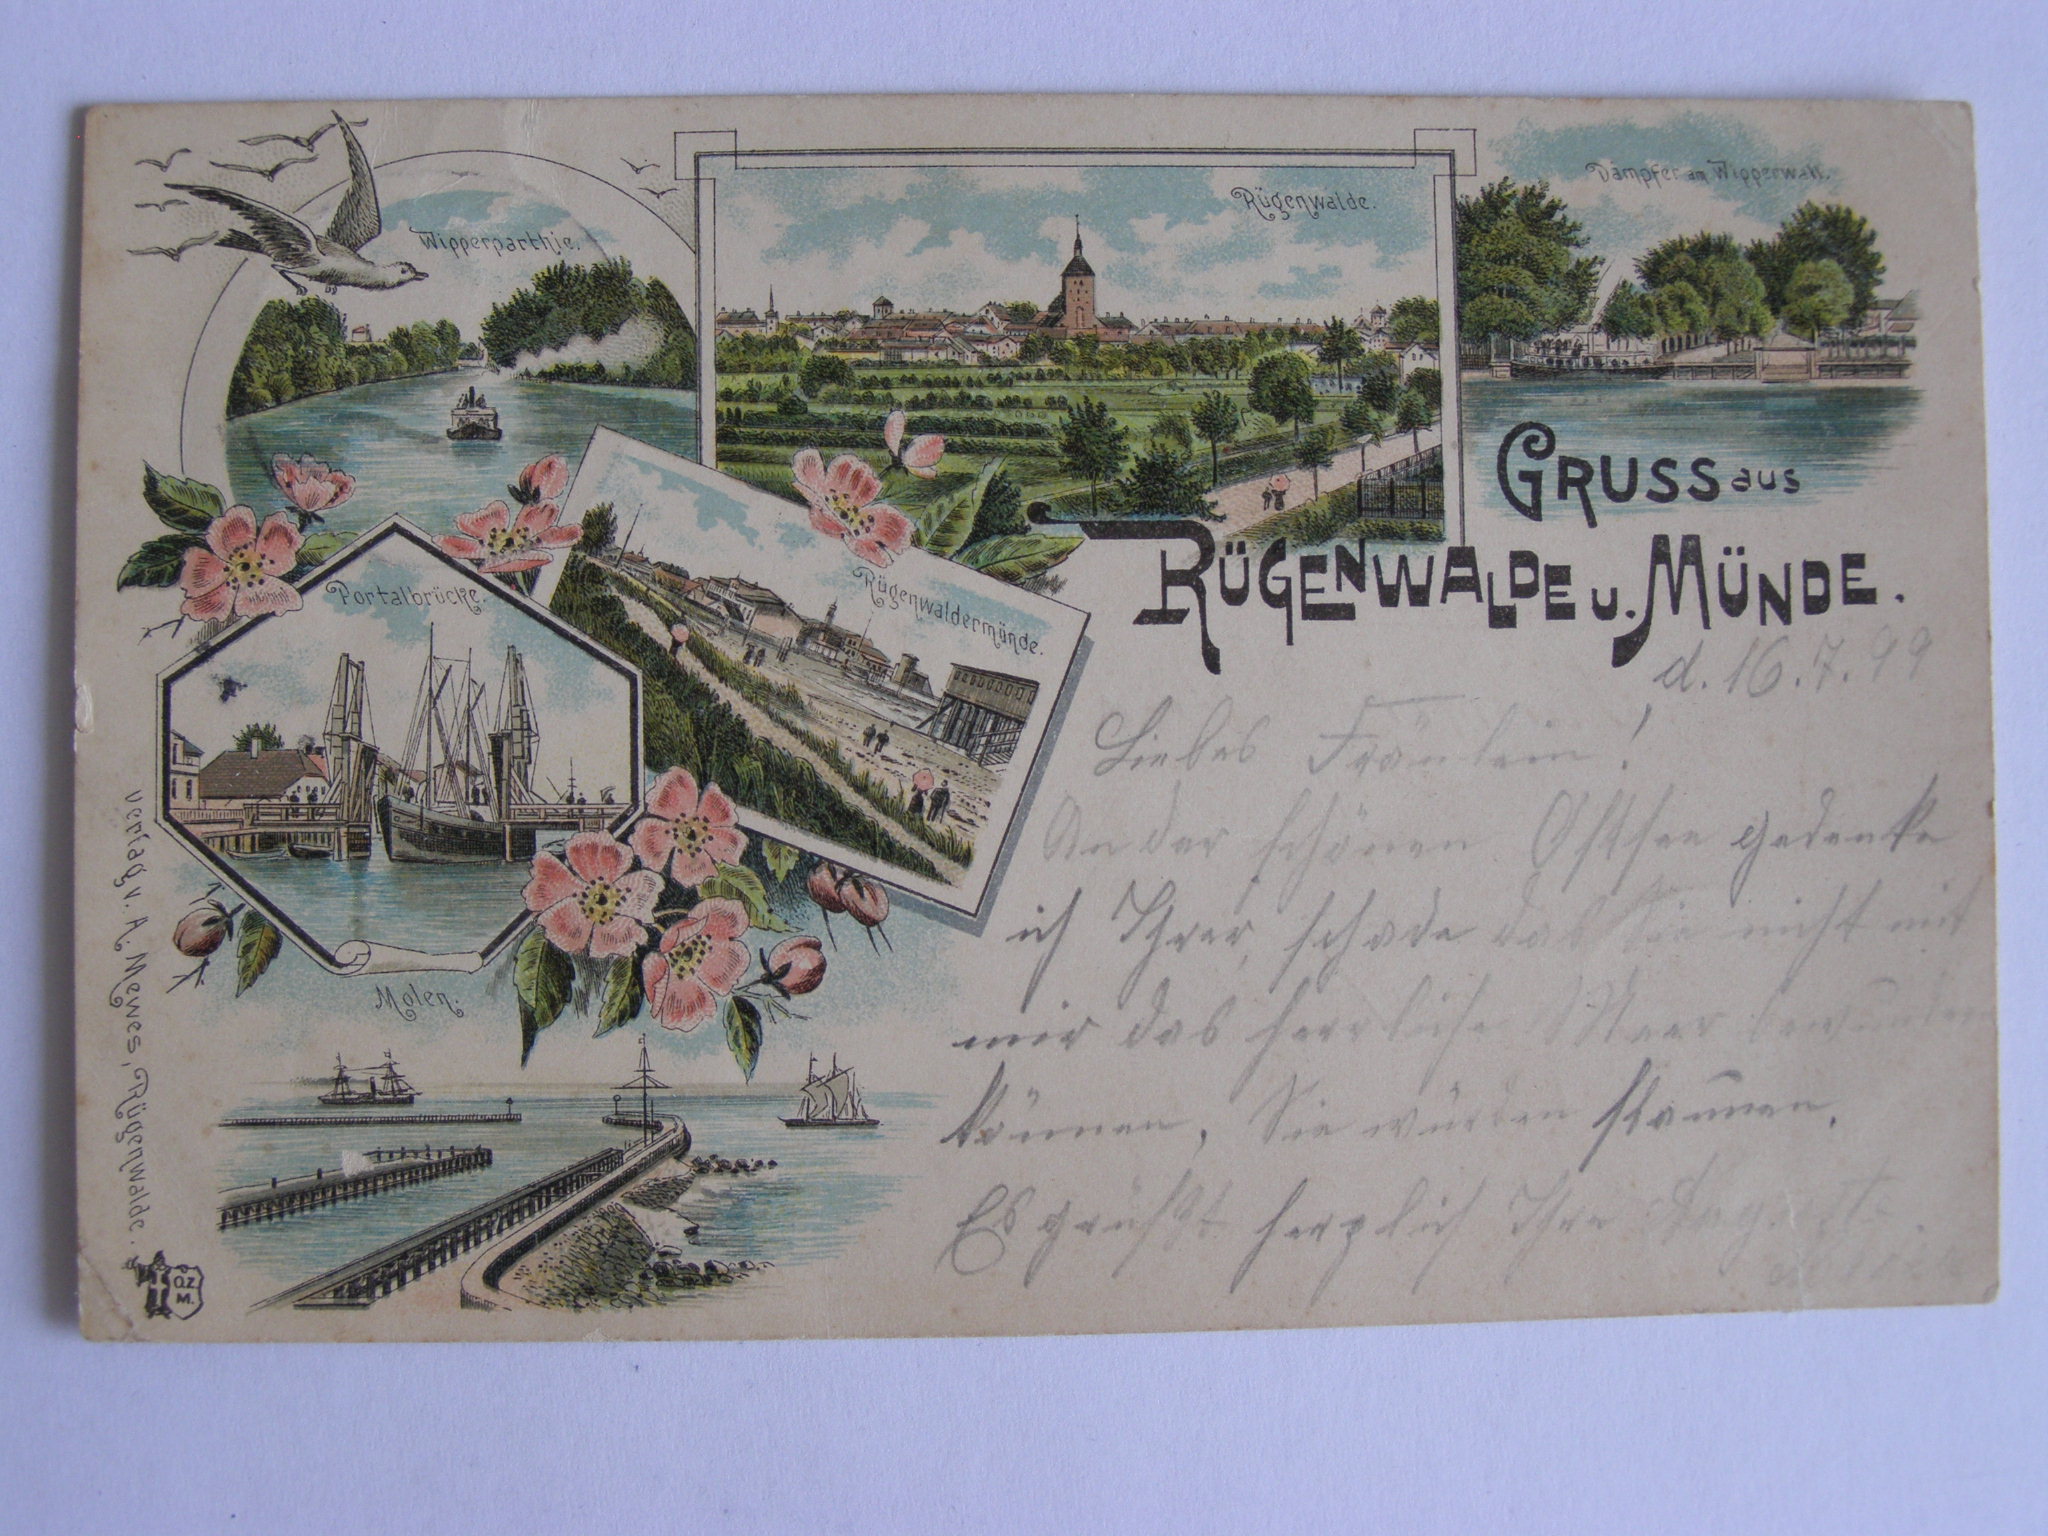 Wipperparthie.
Rügenwalde.
Dampfer am Wipperwall.
GRUSS aus
RÜGENWALDE u. MÜNDE.
Portalbrücke.
Rügenwaldermünde.
Molen.
Verlag v. A. Mewes, Rügenwalde.
O.Z.
M.
d. 16.7.99
Liebes Fräulein!
An der schönen Ostsee gedenke
ich Ihrer, schade das Sie nicht mit
mir das herrliche Meer bewundern
können, Sie würden staunen.
Es grüßt herzlich Ihre